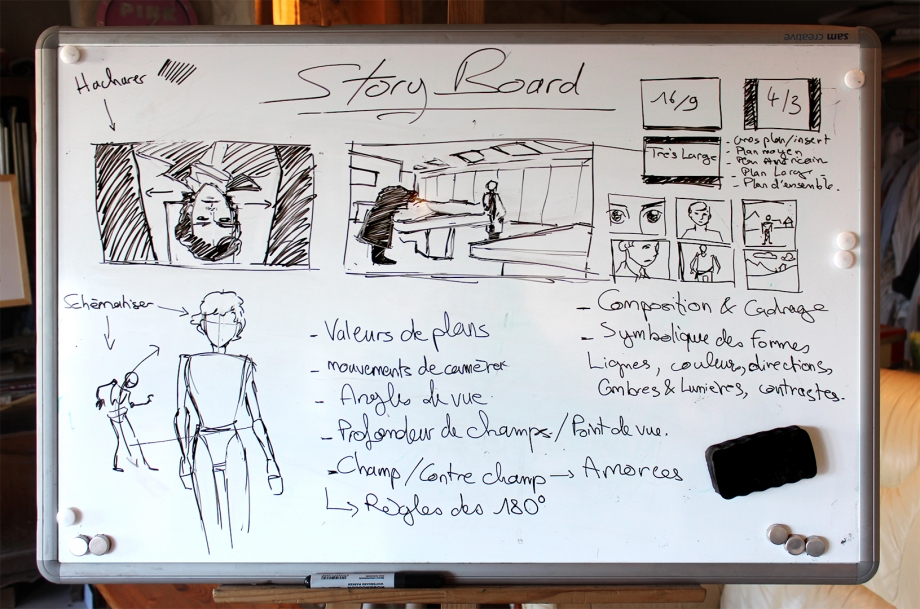 Hachurer
Story Board
16/9
4/3
Très Large
- Gros plan/insert
- Plan moyen
- Plan Américain
- Plan Large
- Plan d'ensemble.
Schèmatiser
- Valeurs de plans
- mouvements de camèrer
- Angles de vue.
- Profondeur de champs / Point de vue.
- Champ / Contre champ → Amorces
↳ Règles des 180°
- Composition & Cadrage
- Symbolique des formes,
Lignes, couleur, directions,
Ombres & Lumières, contrastes.
sam creative